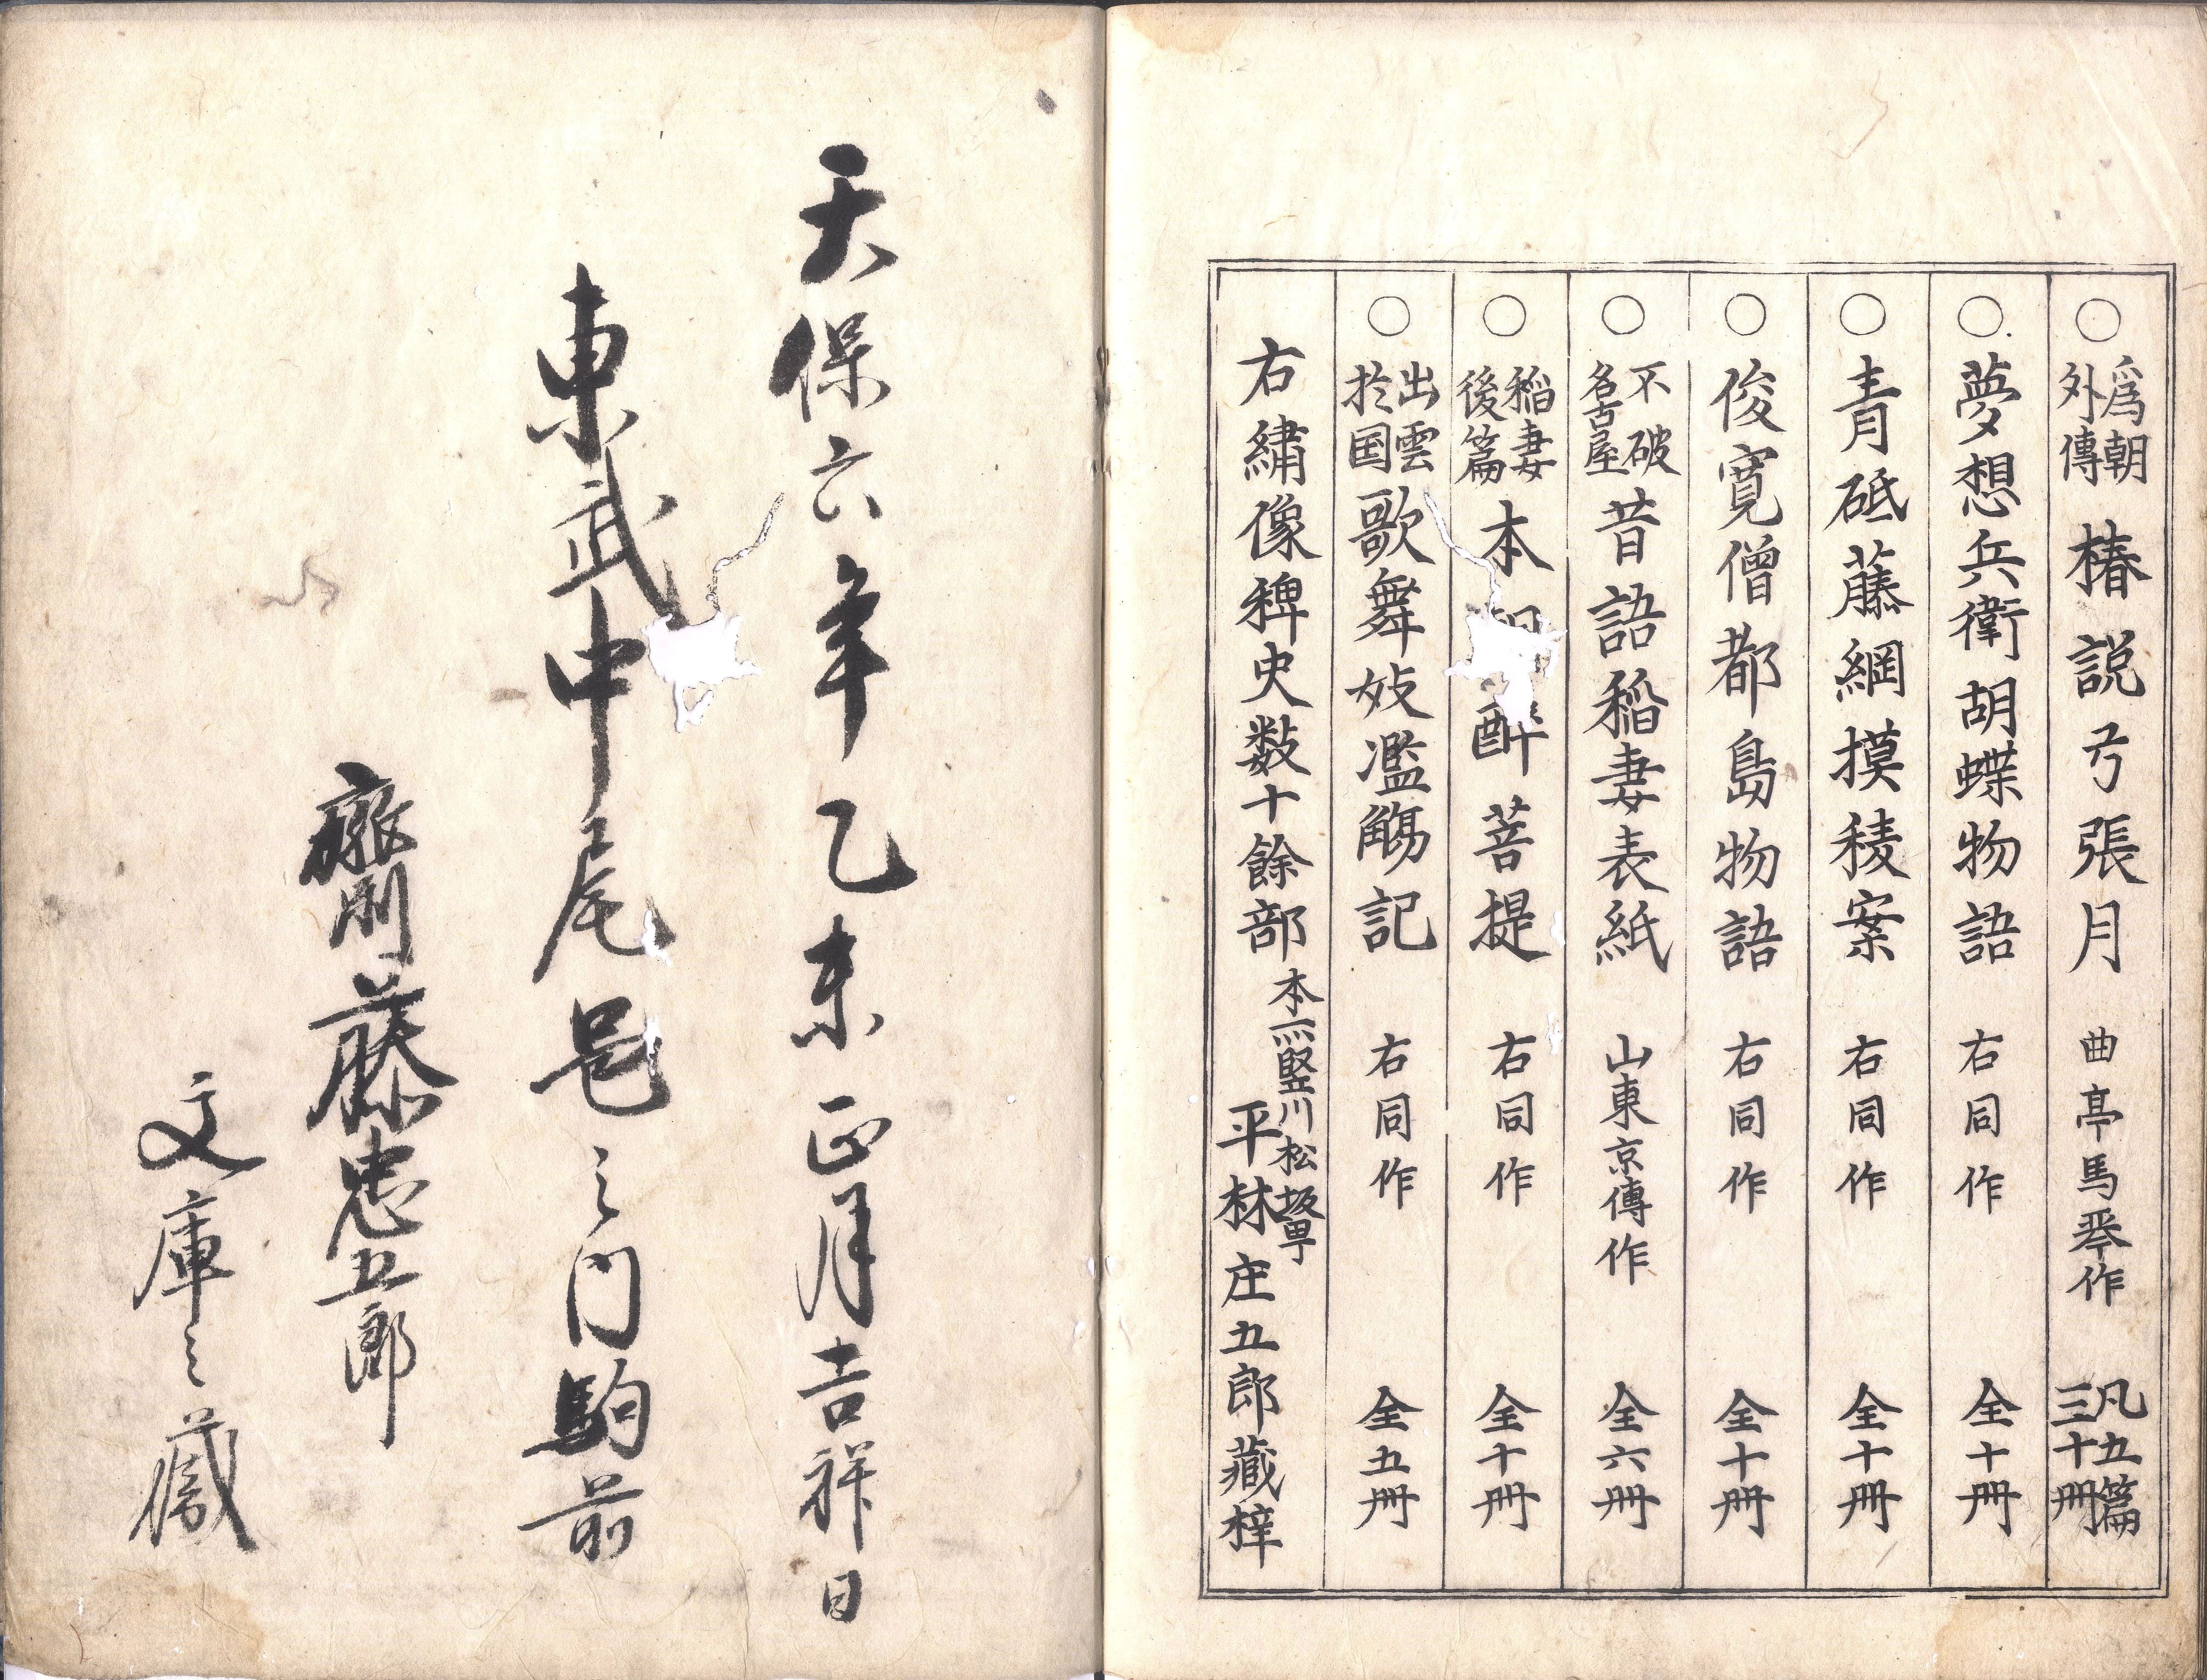 ○爲朝外傳 椿説弓張月 曲亭馬琴作 凡五篇三十冊
○夢想兵衛胡蝶物語 右同作 全十冊
○青砥藤綱摸稜案 右同作 全十冊
○俊寛僧都島物語 右同作 全十冊
○不破名古屋 昔語稲妻表紙 山東京傳作 全六冊
○稲妻後篇 本朝酔菩提 右同作 全十冊
○出雲於国 歌舞妓濫觴記 右同作 全五冊
右繍像稗史数十餘部 本所竪川松坂町 平林庄五郎藏梓
天保六年乙未正月吉祥日
東武中尾是之門駒前
齋藤忠五郎
文庫之藏